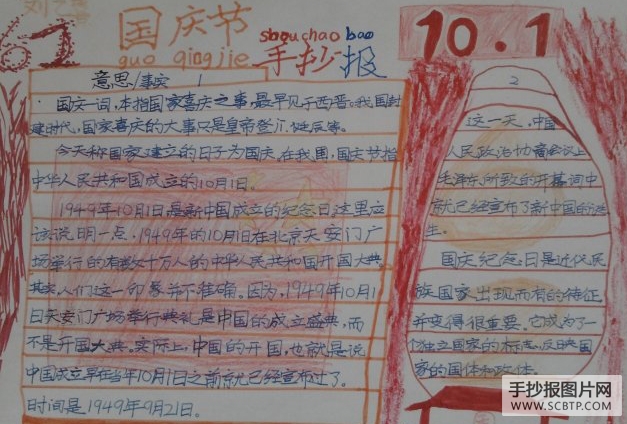 国庆节
guo qing jie
shou chao bao
手抄报
10.1
意思/事实 1
国庆一词,本指国家喜庆之事,最早见于西晋。我国封
建时代,国家喜庆的大事只是皇帝登
今天称国家建立的日子为国庆。在我国,国庆节指
中华人民共和国成立的10月1日。
1949年10月1日是新中国成立的纪念日这里应
该说明一点,1949年的10月1日在北京天安门广
场举行的有数十万人的中华人民共和国开国大典
其实,人们这一印象并不准确。因为,1949年10月1
日天安门广场举行典礼是中国的成立盛典,而
不是开国大典。实际上,中国的开国,也就是说
中国成立早在当年10月1日之前就已经宣布过了。
时间是1949年9月21日。
2
这一天,中国
人民政治协商会议上
毛泽东所致的开幕词中
就已经宣布了新中国的诞
生。
国庆纪念日是近代民
族国家出现而有的特征
并变得很重要。它成为了一
个独立国家的标志,反映
家的国体和政体。
手抄报图片网
WWW.SCBTP.COM